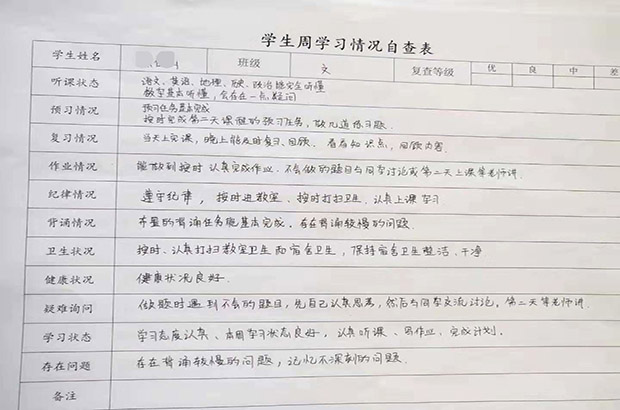 学生周学习情况自查表
学生姓名 班级 文 复查等级 优 良 中 差
听课状态 语文、英语、地理、历史、政治能完全听懂
数学基本听懂，会存在一点疑问
预习情况 预习任务基本完成
按时完成第二天课程的预习任务，做几道练习题.
复习情况 当天上完课，晚上能及时复习、回顾、看看知识点，回顾内容.
作业情况 能做到按时认真完成作业、不会做的题目与同学讨论或第二天上课等老师讲.
纪律情况 遵守纪律，按时进教室、按时打扫卫生、认真上课学习
背诵情况 布置的背诵任务能基本完成、存在背诵较慢的问题.
卫生状况 按时、认真打扫教室卫生和宿舍卫生，保持宿舍卫生整洁、干净
健康状况 健康状况良好.
疑难询问 做题时遇到不会的题目，先自己认真思考，然后与同学交流讨论，第二天等老师讲.
学习状态 学习态度认真、本周学习状态良好，认真听课、写作业、完成计划.
存在问题 存在背诵较慢的问题，记忆不深刻的问题.
备注